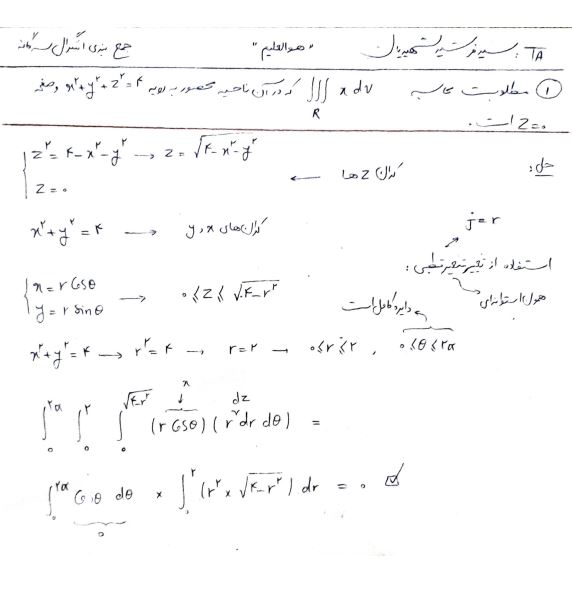 TA : سید فرشید شهیدیان "هوالعلیم" جمع بندی انتگرال سه گانه
① مطلوبست محاسبه ∭_R x dv که در آن ناحیه محصور به رویه x²+y²+z²=۴ و صفحه
z=۰ است.
حل: کران z ها ← { z²=۴-x²-y² → z=√(۴-x²-y²)
z=۰
x²+y²=۴ → کران های x و y
j=r
استفاده از تغییر متغیر قطبی:
همان استوانه‌ای
{ x=r cosθ
y=r sinθ → ۰≤z≤√(۴-r²)
دایره کامل است
x²+y²=۴ → r²=۴ → r=۲ → ۰≤r≤۲ , ۰≤θ≤۲π
∫₀^۲π ∫₀^۲ ∫₀^√(۴-r²) (r cosθ)(r dr dθ) = x dz
∫₀^۲π cosθ dθ × ∫₀^۲ (r² × √(۴-r²)) dr = ۰ ☑
۰